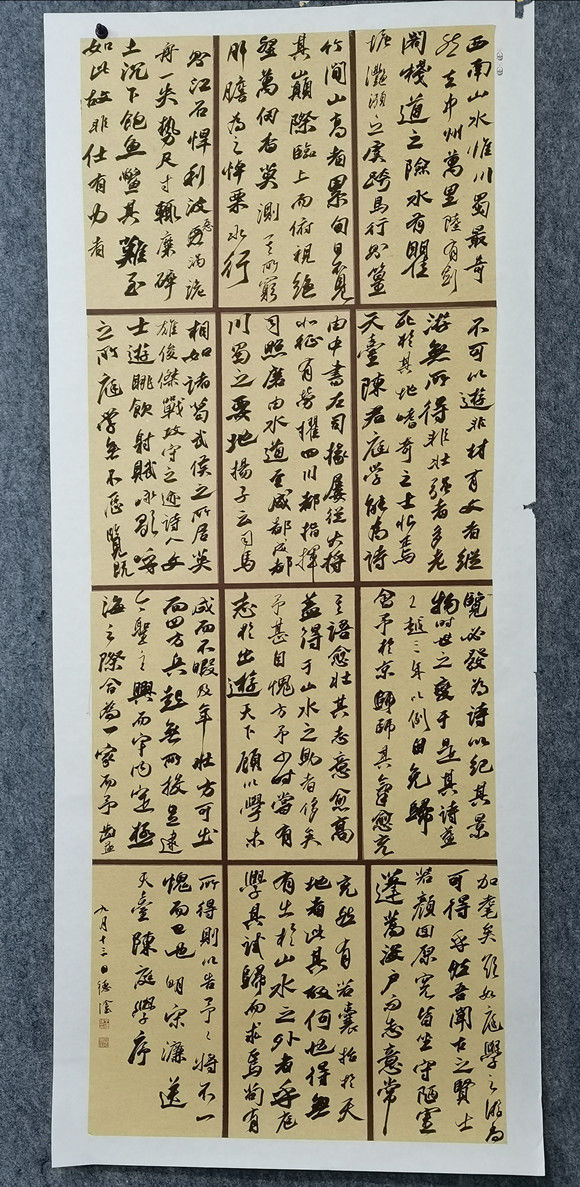 西南山水惟川蜀最奇
然去中州萬里陸有劍
閣棧道之險水有瞿
塘灩澦之虞跨馬行則篁
竹間山高者累旬日不見
其巔際臨上而俯視絕
壑萬仞杳莫測其所窮
肝膽為之悼栗水行
則江石悍利波惡渦詭
舟一失勢尺寸輒糜碎
土沉下飽魚鱉其難至
如此故非仕有力者
不可以遊非材有文者縱
游無所得非壯強者多老
死於其地嗜奇之士恨焉
天臺陳君庭學能為詩
由中書左司掾屢從大將
北征有勞擢四川都指揮
司照磨由水道至成都成都
川蜀之要地揚子云司馬
相如諸葛武侯之所居英
雄俊傑戰攻守之迹詩人文
士遊眺飲射賦咏歌呼
之所庭學無不歷覽既
覽必發為詩以紀其景
物時世之變于是其詩益
工越三年以例自免歸
會予於京師其氣愈充
其語愈壯其志意愈高
益得于山水之助者侈矣
予甚自愧方予少時嘗有
志於出遊天下顧以學未
成而不暇及年壯方可出
而四方兵起無所投足逮
今聖主興而宇內定極
海之際合為一家而予齒益
加耄矣欲如庭學之游尚
可得乎然吾聞古之賢士
若顏回原憲皆坐守陋室
蓬蒿沒戶而志意常
充然有若囊括於天
地者此其故何也得無
有出於山水之外者乎庭
學其試歸而求焉苟有
所得則以告予予將不一
愧而已也明宋濂送
天臺陳庭學序
九月十三日德淦